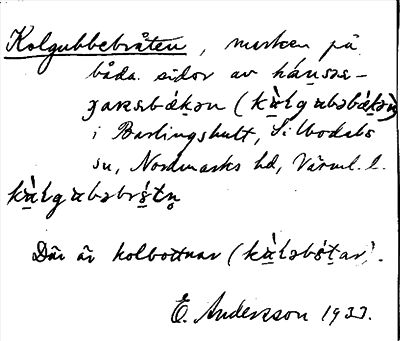 Kolgubbebråten, marken på
båda sidor av hánsəs-
gaxsbákən (kùlgubəbákən)
i Barlingshult, Silbodals
sn, Nordmarks hd, Värml. l.
kùlgubəbrǻtn̥
Där är kolbottnar (kùləbǿtar).
E. Andersson 1933.